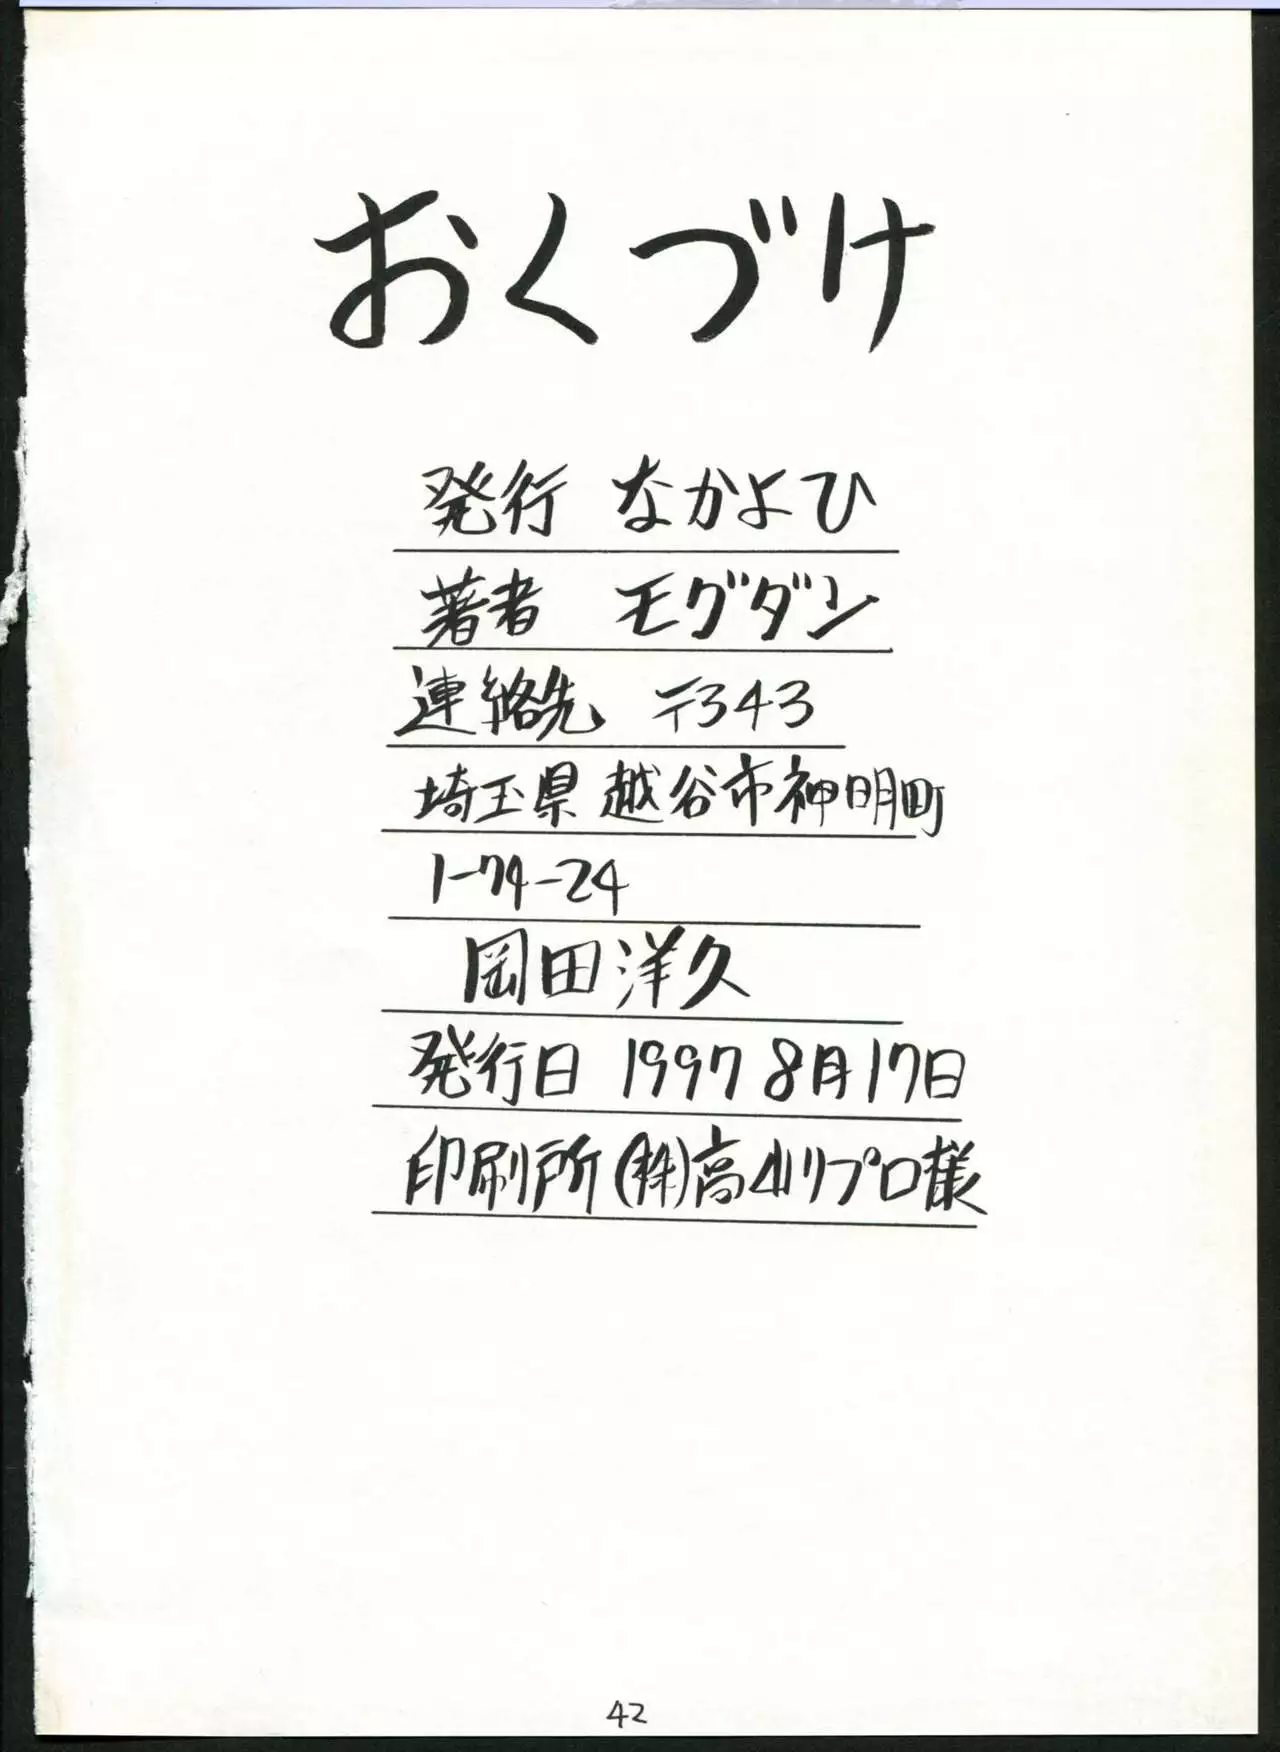 おくづけ
発行 なかよひ
著者 モグダン
連絡先 〒343
埼玉県越谷市神明町
1-74-24
岡田洋久
発行日 1997 8月17日
印刷所 (株)高山リプロ様
42